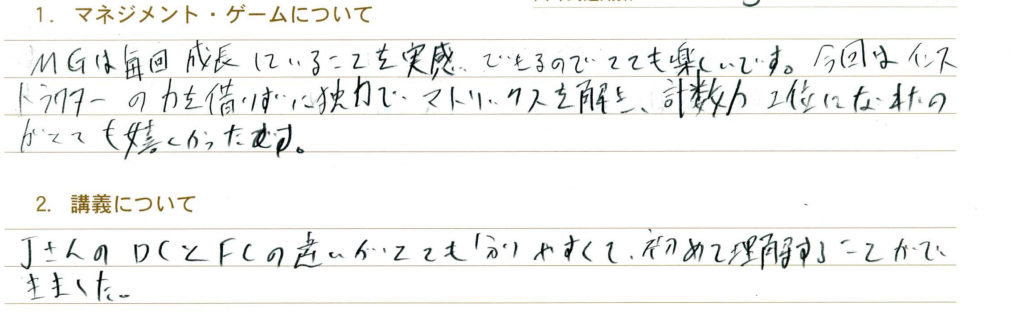 1. マネジメント・ゲームについて
MGは毎回成長していることを実感できるのでとても楽しいです。今回はインス
トラクターの力を借りずに独力で、マトリックスを解き、計数力2位になれたの
がとても嬉しかったです。
2. 講義について
JさんのDCとFCの違いがとても分りやすくて、初めて理解することがで
きました。